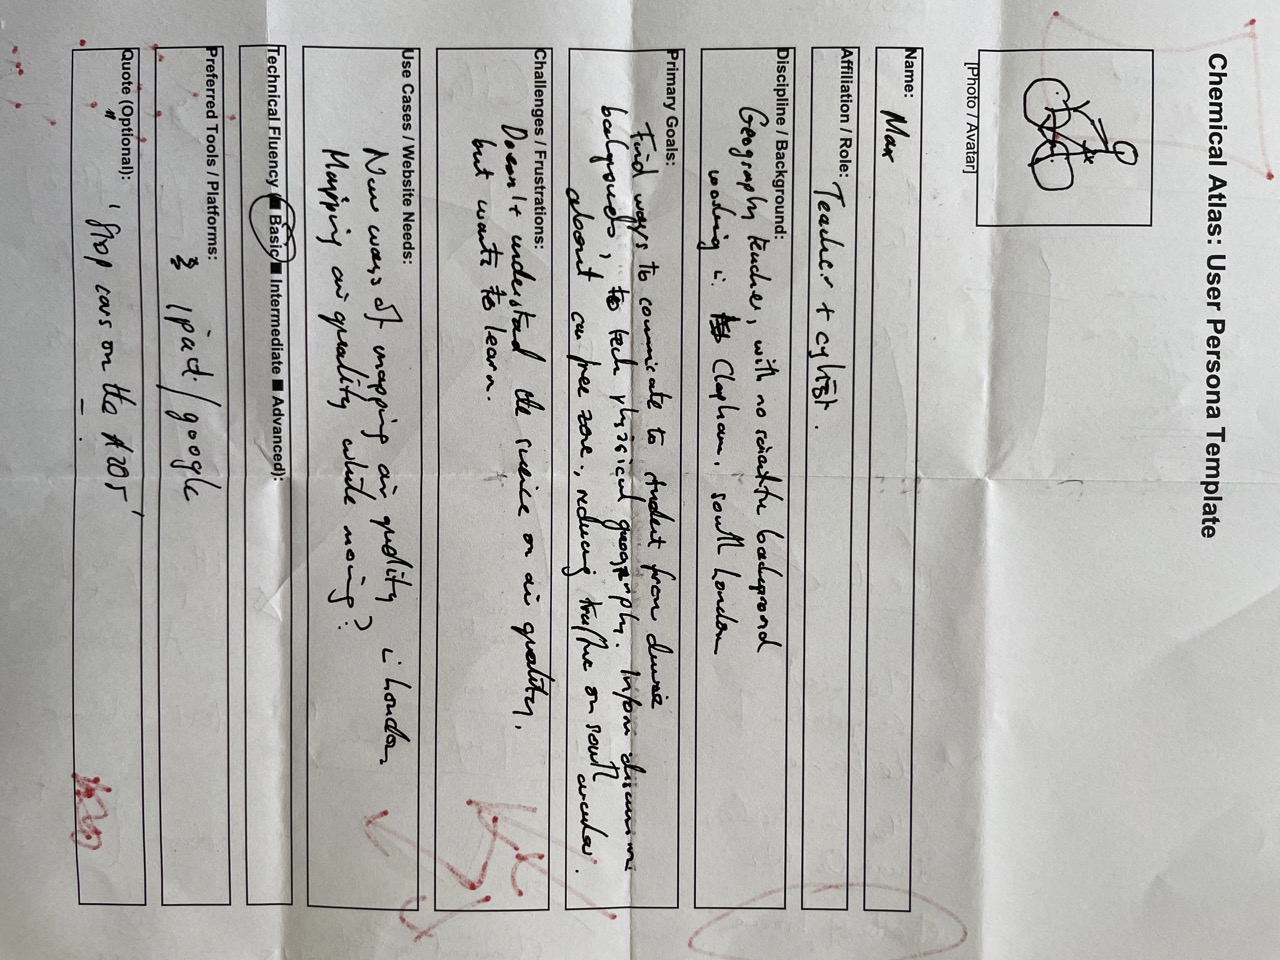 Chemical Atlas: User Persona Template
[Photo / Avatar]
Name:
Max
Affiliation / Role:
Teacher + cylist.
Discipline / Background:
Geography teacher, with no scientific background
working in Clapham, south London
Primary Goals:
Find ways to comunicate to student from diverse
backgrounds, to teach physical geography. Inform discussions
about car free zone, reducing traffic on south
circular.
Challenges / Frustrations:
Doesn't understand the science on air quality,
but wants to learn.
Use Cases / Website Needs:
New ways of mapping air quality in London
Mapping air quality while moving?
Technical Fluency (■ Basic ■ Intermediate ■ Advanced):
Preferred Tools / Platforms:
ipad / google
Quote (Optional):
'Stop cars on the A205'